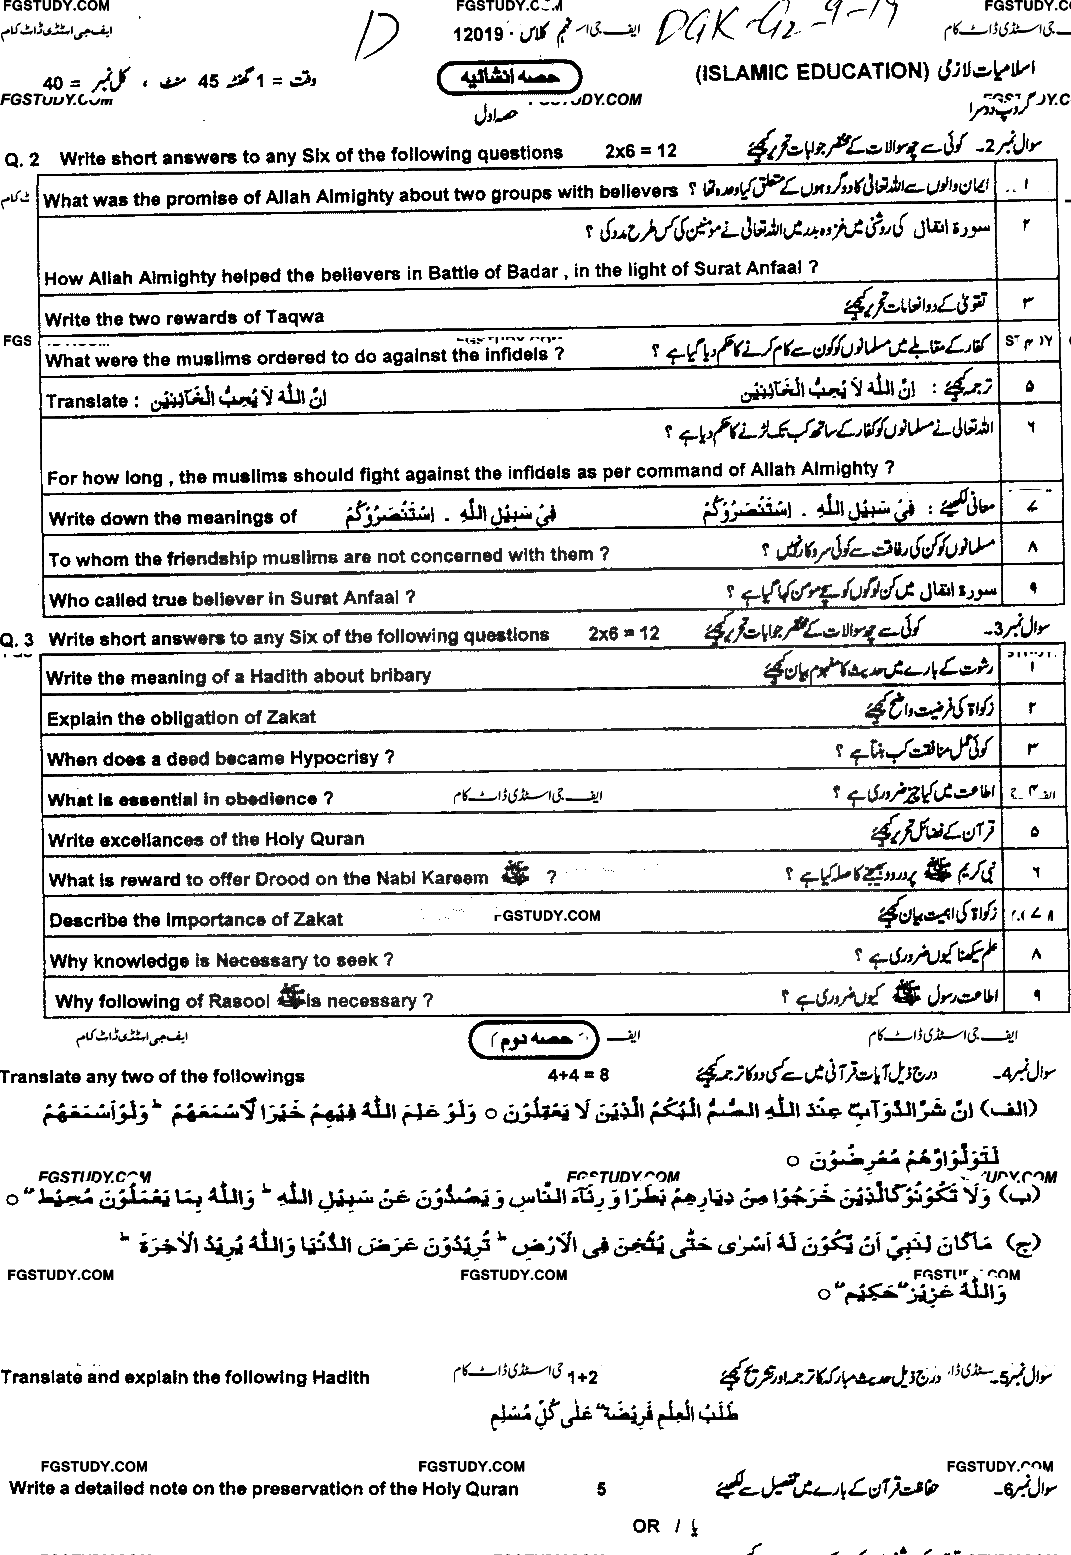 FGSTUDY.COM FGSTUDY.COM FGSTUDY.CO
ایف جی اسٹڈی ڈاٹ کام D 12019 - نہم کلاس ایف جی اس DGK-G2-9-19 جی اسٹڈی ڈاٹ کام
وقت = 1 گھنٹہ 45 منٹ ، کل نمبر = 40 حصہ انشائیہ (ISLAMIC EDUCATION) اسلامیات لازمی
FGSTUDY.Com حصہ اول DY.COM گروپ دوسرا
Q. 2 Write short answers to any Six of the following questions 2x6 = 12 سوال نمبر 2۔ کوئی سے چھ سوالات کے مختصر جوابات تحریر کیجئے
What was the promise of Allah Almighty about two groups with believers ایمان والوں سے اللہ تعالیٰ کا دو گروہوں کے متعلق کیا وعدہ تھا ؟ ۱
سورۃ انفال کی روشنی میں غزوہ بدر میں اللہ تعالیٰ نے مومنین کی کس طرح مدد کی ؟ ۲
How Allah Almighty helped the believers in Battle of Badar , in the light of Surat Anfaal ?
Write the two rewards of Taqwa تقویٰ کے دو انعامات تحریر کیجئے ۳
FGS
What were the muslims ordered to do against the infidels ? کفار کے مقابلے میں مسلمانوں کو کون سے کام کرنے کا حکم دیا گیا ہے ؟ ۴
Translate : اِنَّ اللّٰهَ لَا يُحِبُّ الْخَآئِنِيْن ترجمہ کیجئے : اِنَّ اللّٰهَ لَا يُحِبُّ الْخَآئِنِيْن ۵
اللہ تعالیٰ نے مسلمانوں کو کفار کے ساتھ کب تک لڑنے کا حکم دیا ہے ؟ ۶
For how long , the muslims should fight against the infidels as per command of Allah Almighty ?
Write down the meanings of فِيْ سَبِيْلِ اللّٰهِ . اسْتَنْصَرُوْكُمْ معانی لکھیئے : فِيْ سَبِيْلِ اللّٰهِ . اسْتَنْصَرُوْكُمْ ۷
To whom the friendship muslims are not concerned with them ? مسلمانوں کو کن کی رفاقت سے کوئی سروکار نہیں ؟ ۸
Who called true believer in Surat Anfaal ? سورۃ انفال میں کن لوگوں کو سچے مومن کہا گیا ہے ؟ ۹
Q. 3 Write short answers to any Six of the following questions 2x6 = 12 سوال نمبر 3۔ کوئی سے چھ سوالات کے مختصر جوابات تحریر کیجئے
Write the meaning of a Hadith about bribary رشوت کے بارے میں حدیث کا مفہوم بیان کیجئے ۱
Explain the obligation of Zakat زکواۃ کی فرضیت واضح کیجئے ۲
When does a deed became Hypocrisy ? کوئی عمل منافقت کب بنتا ہے ؟ ۳
What is essential in obedience ? ایف جی اسٹڈی ڈاٹ کام اطاعت میں کیا چیز ضروری ہے ؟ ۴
Write excellances of the Holy Quran قرآن کے فضائل تحریر کیجئے ۵
What is reward to offer Drood on the Nabi Kareem ﷺ ? نبی کریم ﷺ پر درود بھیجنے کا صلہ کیا ہے ؟ ۶
Describe the Importance of Zakat FGSTUDY.COM زکواۃ کی اہمیت بیان کیجئے ۷
Why knowledge is Necessary to seek ? علم سیکھنا کیوں ضروری ہے ؟ ۸
Why following of Rasool ﷺ is necessary ? اطاعت رسول ﷺ کیوں ضروری ہے ؟ ۹
ایف جی اسٹڈی ڈاٹ کام حصہ دوم ایف جی اسٹڈی ڈاٹ کام
Translate any two of the followings 4+4 = 8 سوال نمبر 4۔ درج ذیل آیات قرآنی میں سے کسی دو کا ترجمہ کیجئے
(الف) اِنَّ شَرَّ الدَّوَآبِّ عِنْدَ اللّٰهِ الصُّمُّ الْبُكْمُ الَّذِيْنَ لَا يَعْقِلُوْنَ ○ وَلَوْ عَلِمَ اللّٰهُ فِيْهِمْ خَيْرًا لَّاَسْمَعَهُمْ ؕ وَلَوْ اَسْمَعَهُمْ
لَتَوَلَّوْا وَّهُمْ مُّعْرِضُوْنَ ○
FGSTUDY.COM FGSTUDY.COM UDY.COM
(ب) وَلَا تَكُوْنُوْا كَالَّذِيْنَ خَرَجُوْا مِنْ دِيَارِهِمْ بَطَرًا وَّ رِئَآءَ النَّاسِ وَ يَصُدُّوْنَ عَنْ سَبِيْلِ اللّٰهِ ؕ وَاللّٰهُ بِمَا يَعْمَلُوْنَ مُحِيْطٌ ○
(ج) مَاكَانَ لِنَبِيٍّ اَنْ يَّكُوْنَ لَهٗ اَسْرٰى حَتّٰى يُثْخِنَ فِى الْاَرْضِ ؕ تُرِيْدُوْنَ عَرَضَ الدُّنْيَا وَاللّٰهُ يُرِيْدُ الْاٰخِرَةَ ؕ
FGSTUDY.COM FGSTUDY.COM FGSTUDY.COM
وَاللّٰهُ عَزِيْزٌ حَكِيْمٌ ○
Translate and explain the following Hadith جی اسٹڈی ڈاٹ کام 1+2 سوال نمبر 5۔ درج ذیل حدیث مبارکہ کا ترجمہ اور تشریح کیجئے
طَلَبُ الْعِلْمِ فَرِيْضَةٌ عَلٰى كُلِّ مُسْلِمٍ
FGSTUDY.COM FGSTUDY.COM FGSTUDY.COM
Write a detailed note on the preservation of the Holy Quran 5 سوال نمبر 6۔ حفاظت قرآن کے بارے میں تفصیل سے لکھیئے
OR / یا